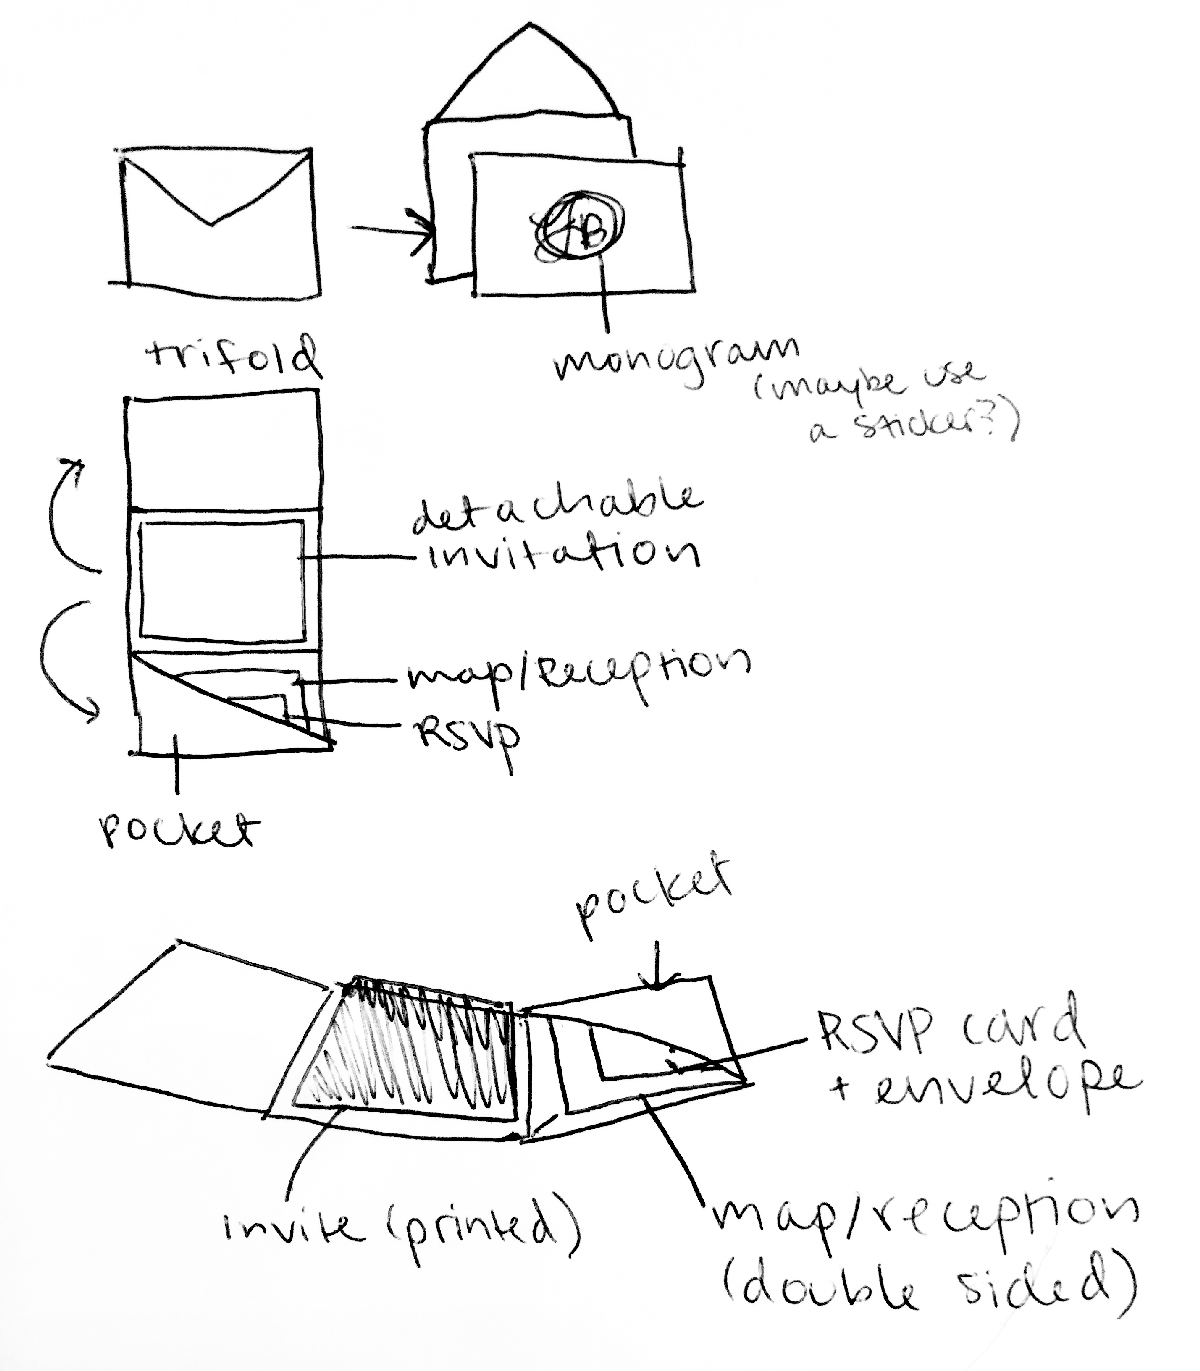 trifold
monogram
(maybe use
a sticker?)
detachable
invitation
map/reception
RSVP
pocket
pocket
RSVP card
+ envelope
invite (printed)
map/reception
(double sided)